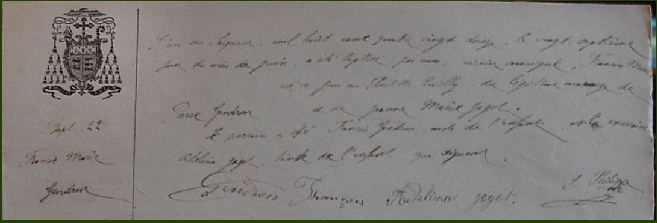 L'an du Seigneur, mil huit cent quatre vingt douze, le vingt septième
jour du mois de juin, a été baptisé par nous, vicaire soussigné, Francis Marie
né ce jour au légitime mariage de
Pierre Gendron et de Jeanne Marie Jagot.
Le parrain a été Francis Gendron oncle de l'enfant et la marraine
Adelina Jagot, tante de l'enfant qui signent.
Gendron François Adelina Jagot.
Bapt. 22
Francis Marie
Gendron